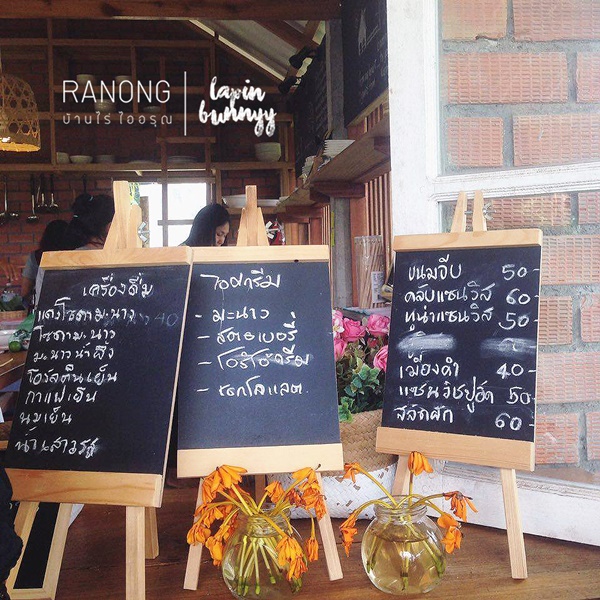 RANONG
บ้านไร่ ไออรุณ
lapin
bunnyy
เครื่องดื่ม
แดงโซดามะนาว 40
โซดามะนาว
มะนาวน้ำผึ้ง
โอวัลตินเย็น
กาแฟเย็น
นมเย็น
น้ำเสาวรส
ไอศครีม
- มะนาว
- สตอเบอรี่
- โอริโอ้ครีม
- ชอกโกแลต
ขนมจีบ 50-
คลับแซนวิส 60-
ทูน่าแซนวิส 50-
เมี่ยงคำ 40-
แซนวิชปูอัด 50-
สลัดผัก 60-